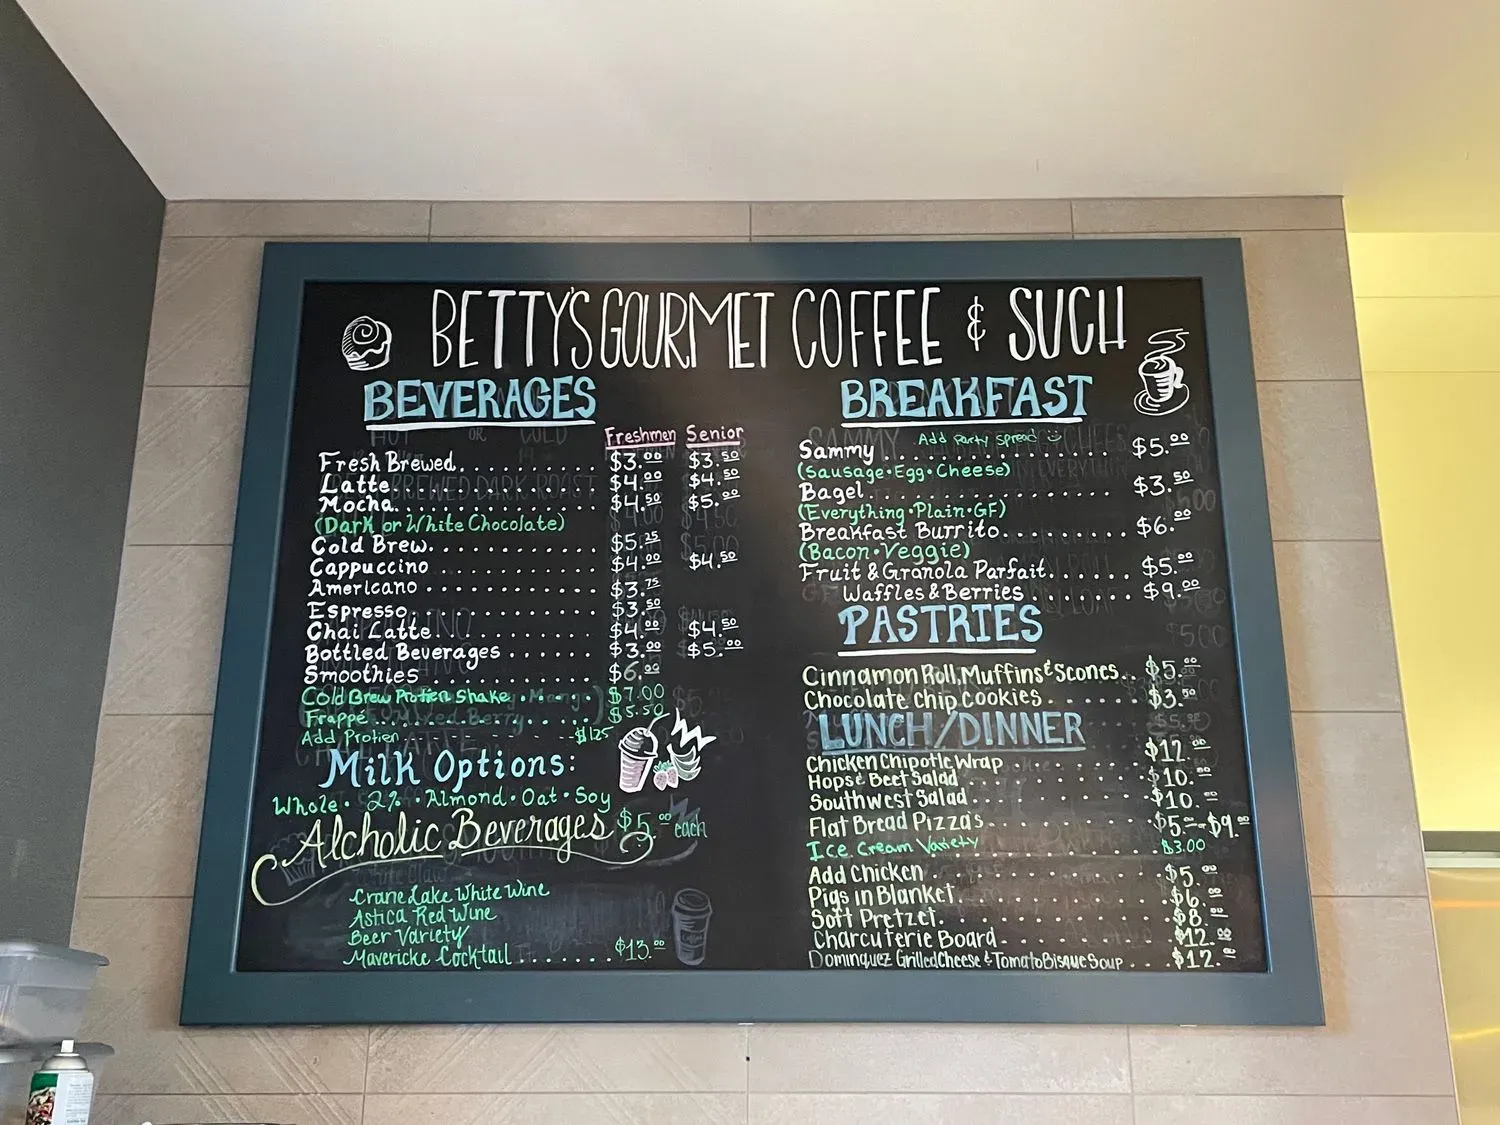 BETTY'S GOURMET COFFEE & SUCH
BEVERAGES
Freshmen Senior
Fresh Brewed.......... $3.00 $3.50
Latte.......... $4.00 $4.50
Mocha.......... $4.50 $5.00
(Dark or White Chocolate)
Cold Brew.......... $5.25
Cappuccino.......... $4.00 $4.50
Americano.......... $3.75
Espresso.......... $3.50
Chai Latte.......... $4.00 $4.50
Bottled Beverages...... $3.00 $5.00
Smoothies.......... $6.00
Cold Brew Protien Shake.... $7.00
Frappé.......... $5.50
Add Protien ------- $1.25
Milk Options:
Whole · 2% · Almond · Oat · Soy
Alcholic Beverages $5.00 each
Crane Lake White Wine
Astica Red Wine
Beer Variety
Mavericke Cocktail....... $13.00
BREAKFAST
Add party spread
Sammy.............. $5.00
(Sausage·Egg·Cheese)
Bagel.............. $3.50
(Everything·Plain·GF)
Breakfast Burrito........ $6.00
(Bacon·Veggie)
Fruit & Granola Parfait...... $5.00
Waffles & Berries....... $9.00
PASTRIES
Cinnamon Roll, Muffins & Scones.. $5.00
Chocolate chip cookies...... $3.50
LUNCH/DINNER
Chicken Chipotle Wrap....... $12.00
Hops & Beet Salad........ $10.00
Southwest Salad........ $10.00
Flat Bread Pizza's........ $5.00 or $9.00
Ice Cream Variety........ $3.00
Add Chicken.......... $5.00
Pigs in Blanket.......... $6.00
Soft Pretzel.......... $8.00
Charcuterie Board........ $12.00
Dominquez Grilled Cheese & Tomato Bisque Soup... $12.00